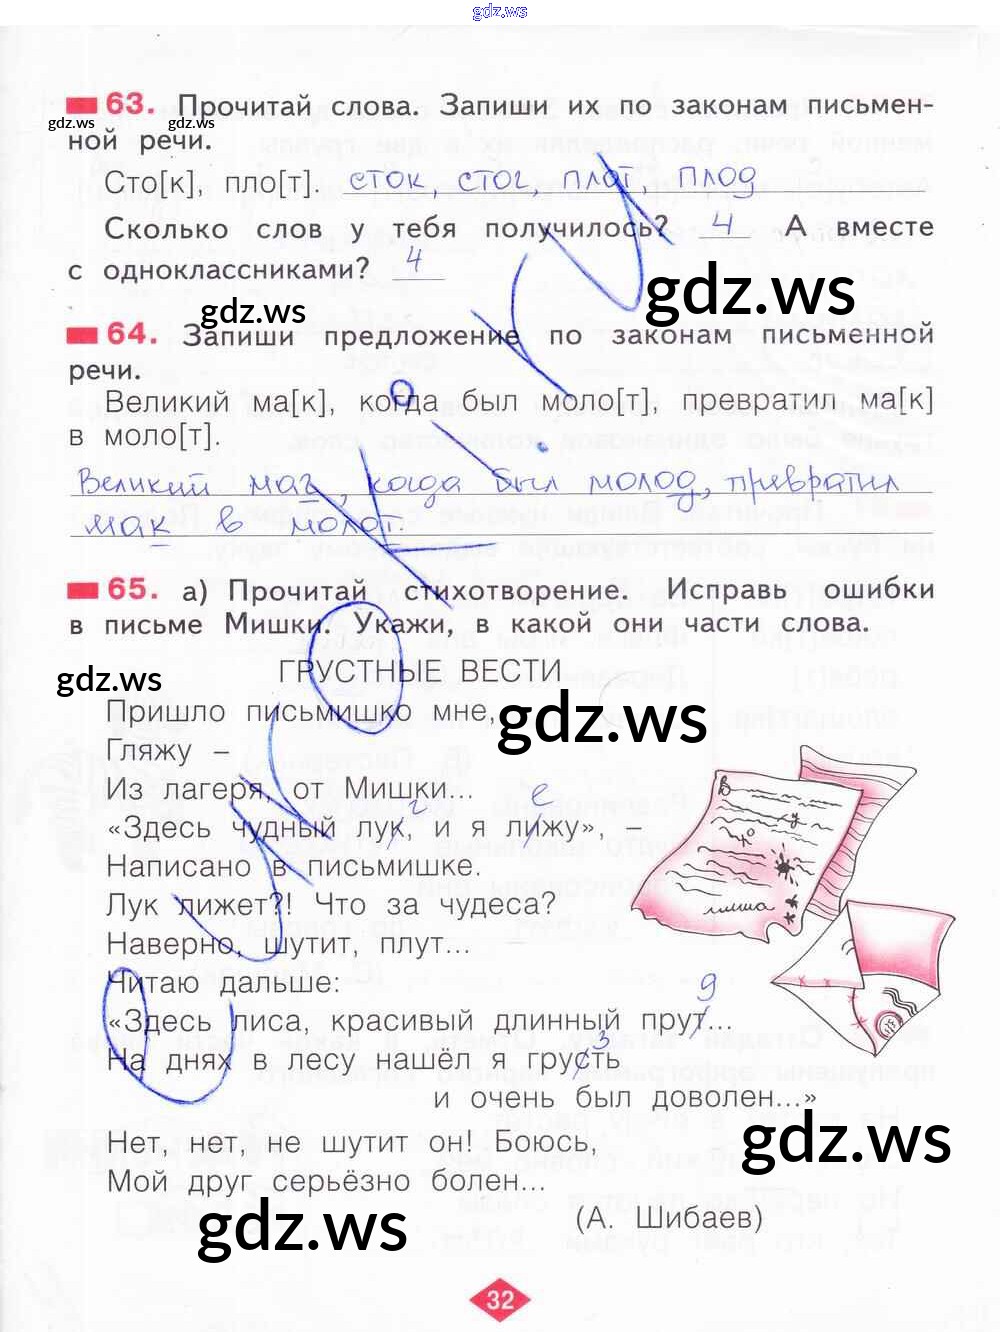 gdz.ws
63. Прочитай слова. Запиши их по законам письмен-
gdz.ws gdz.ws
ной речи.
Сто[к], пло[т]. сток стог плот, плод
Сколько слов у тебя получилось? 4 А вместе
с одноклассниками? 4
gdz.ws
gdz.ws
64. Запиши предложение по законам письменной
речи.
Великий ма[к], когда был моло[т], превратил ма[к]
в моло[т].
Великий маг, когда был молод, превратил
мак в молот.
65. а) Прочитай стихотворение. Исправь ошибки
в письме Мишки. Укажи, в какой они части слова.
ГРУСТНЫЕ ВЕСТИ
gdz.ws
Пришло письмишко мне,
gdz.ws
Гляжу –
Из лагеря, от Мишки...
г е
«Здесь чудный лук, и я лижу», –
Написано в письмишке.
Лук лижет?! Что за чудеса?
Наверно, шутит, плут...
Читаю дальше:
д
«Здесь лиса, красивый длинный прут...
з
На днях в лесу нашёл я грусть
и очень был доволен...»
Нет, нет, не шутит он! Боюсь,
gdz.ws
Мой друг серьёзно болен...
gdz.ws
(А. Шибаев)
миша
32